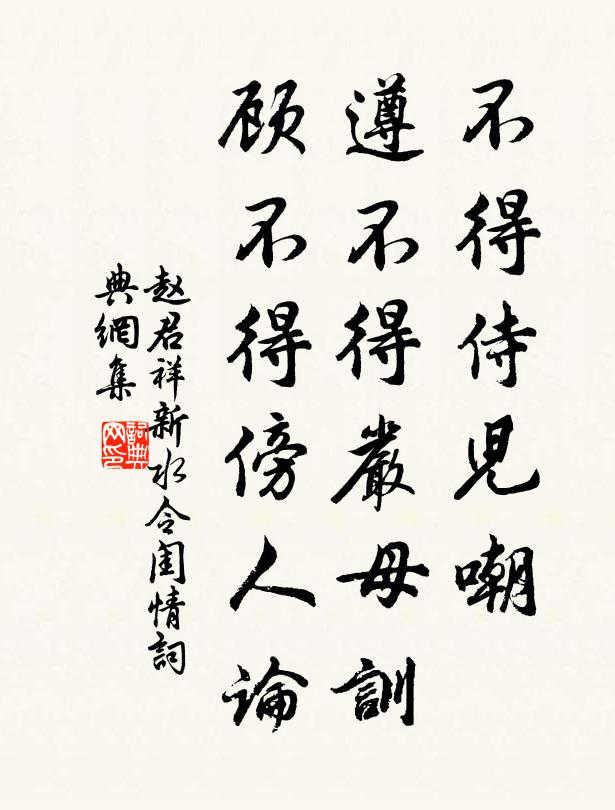 不得侍児嘲
遵不得嚴母訓
顧不得傍人論
赵君祥新水令闺情詞
典網集
詞典
网印